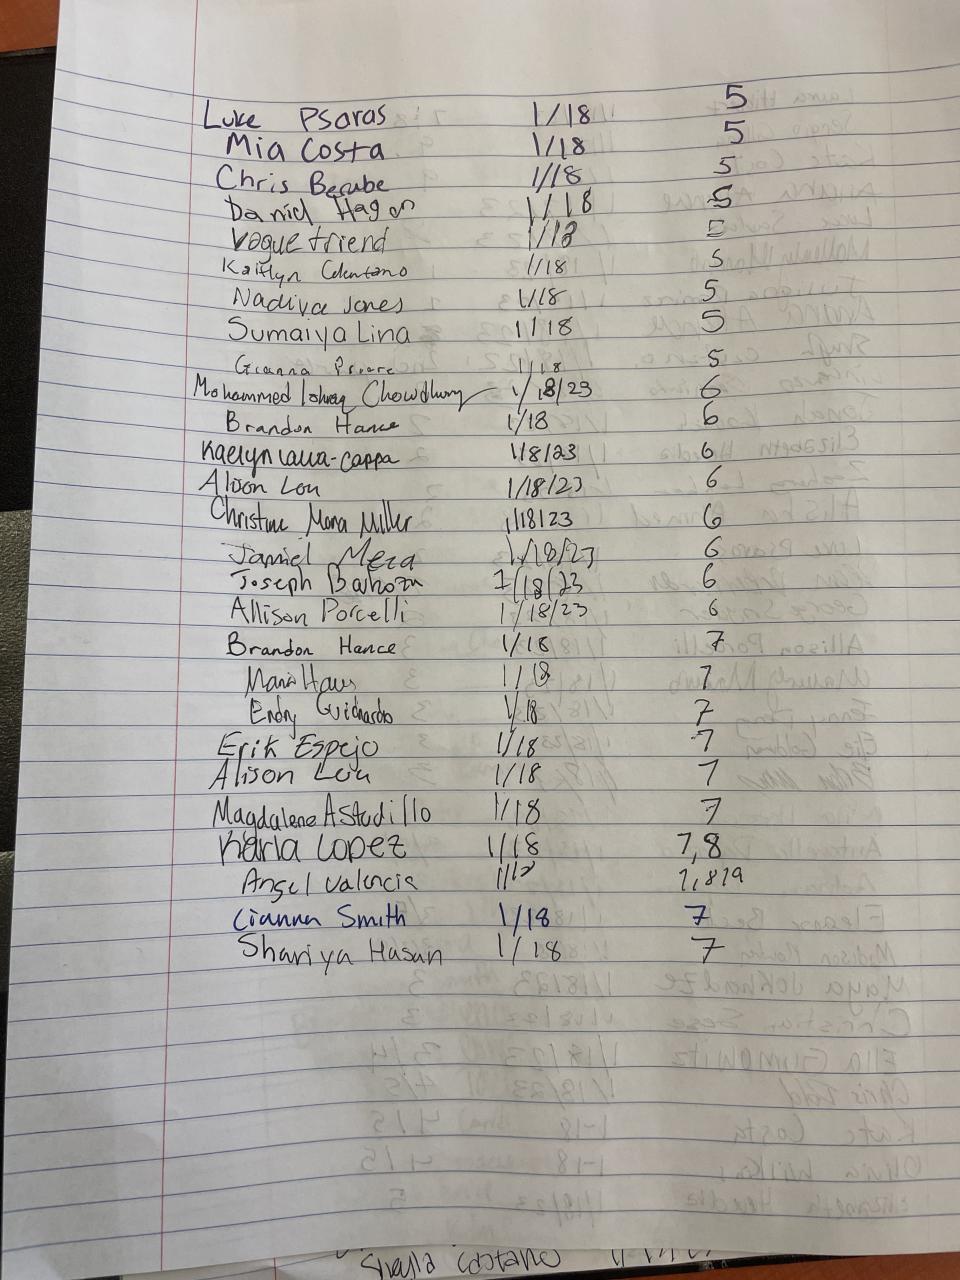 Luke Psaras 1/18 5
Mia Costa 1/18 5
Chris Berube 1/18 5
Daniel Hagan 1/18 5
Vogue friend 1/18 5
Kaitlyn Celentano 1/18 5
Nadiya Jones 1/18 5
Sumaiya Lina 1/18 5
Gianna 1/18 5
Mohammed Chowdhury 1/18/23 6
Brandon Hance 1/18 6
Kaelyn Lalla-Cappa 1/18/23 6
Alison Lou 1/18/23 6
Christine Mona Miller 1/18/23 6
Jamiel Meza 1/18/23 6
Joseph 1/18/23 6
Allison Porcelli 1/18/23 6
Brandon Hance 1/18 7
Maria Haws 1/18 7
Endry Guichardo 1/18 7
Erik Espejo 1/18 7
Alison Lou 1/18 7
Magdalena Astudillo 1/18 7
Karla Lopez 1/18 7,8
Angel Valencia 7,8,9
Cianna Smith 1/18 7
Shariya Hasan 1/18 7